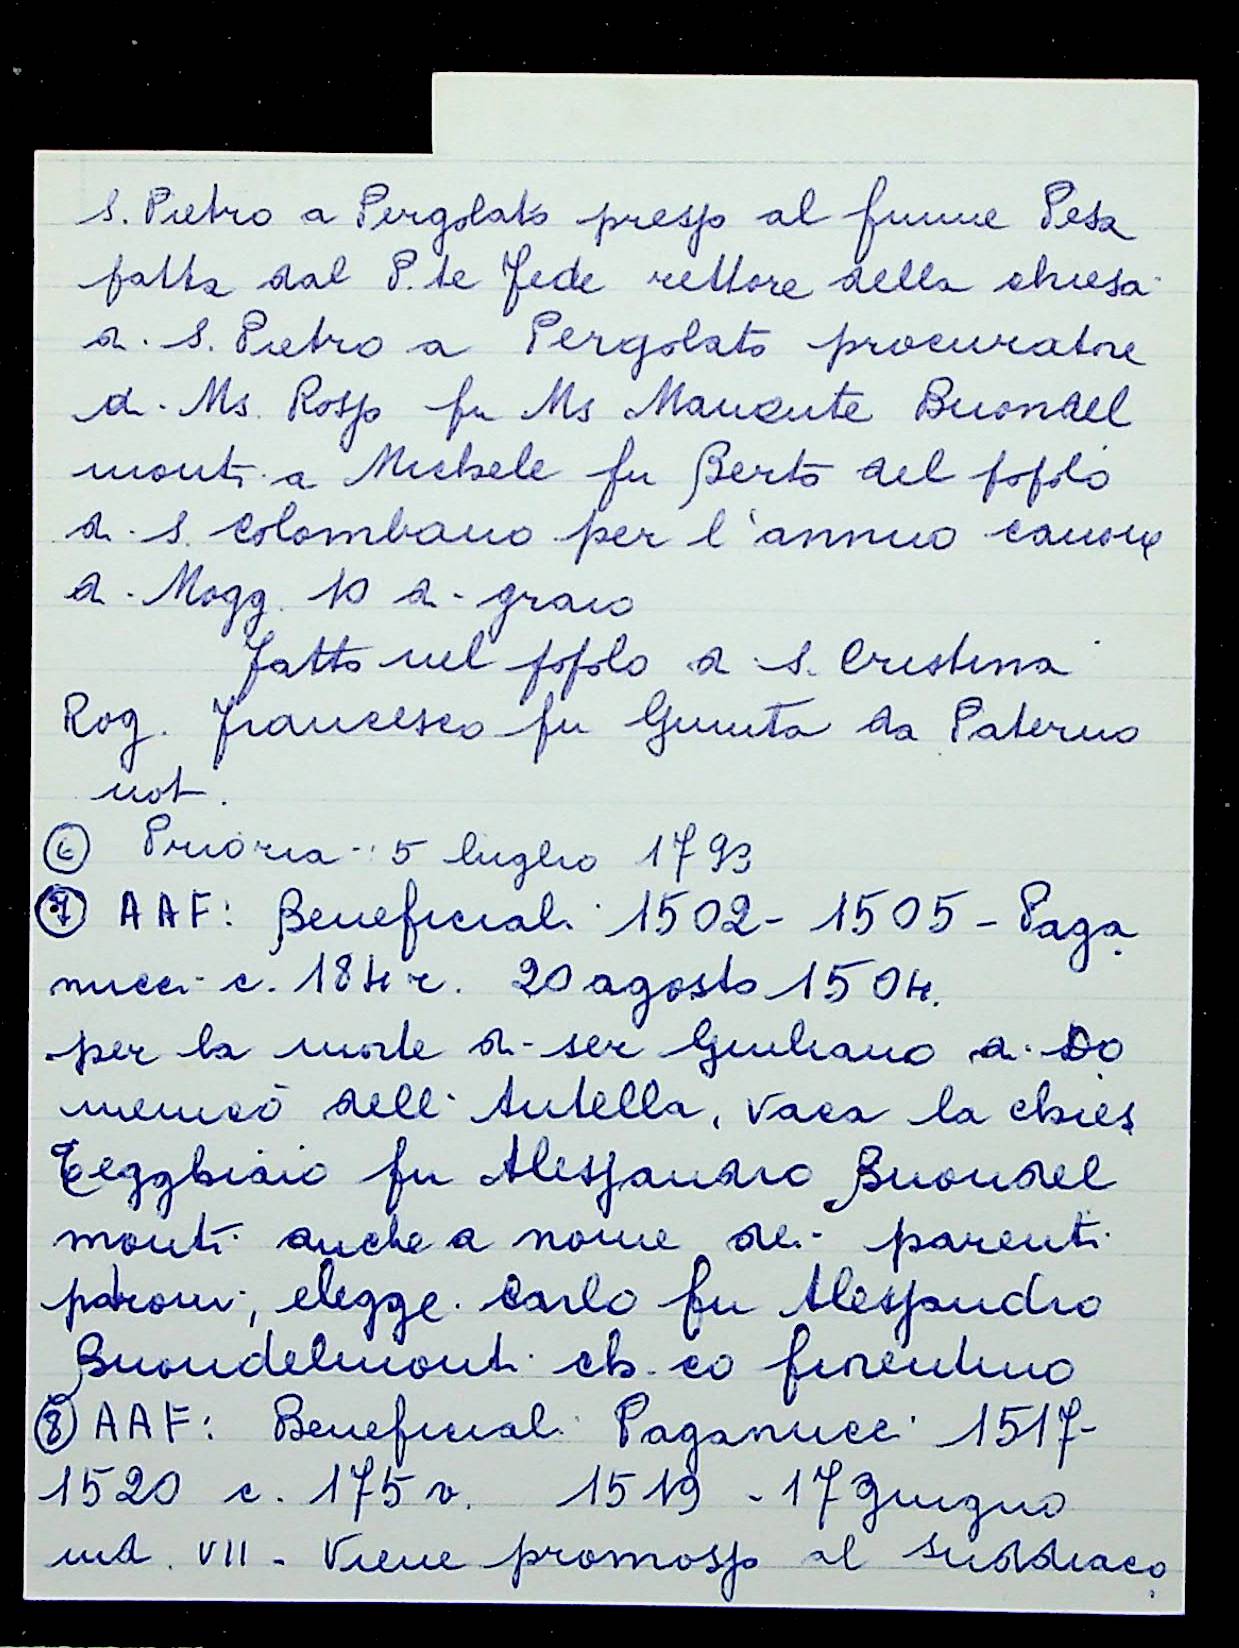 S. Pietro a Pergolato presso al fiume Pesa
fatta dal P.te Fede rettore della chiesa
di S. Pietro a Pergolato procuratore
di Ms. Rosso fu Ms Manente Buondel
monti a Michele fu Berto del popolo
di S. Colombano per l'annuo canone
di Mogg. 10 di grano
Fatto nel popolo di S. Cristina
Rog. Francesco fu Giunta da Paterno
not.
⑥ Prioria: 5 luglio 1793
⑦ AAF: Beneficiali 1502 - 1505 - Paga
nucci c. 184 r. 20 agosto 1504.
per la morte di ser Giuliano di Do
menico dell'Antella, vaca la chies
Tegghiaio fu Alessandro Buondel
monti anche a nome dei parenti
patroni, elegge Carlo fu Alessandro
Buondelmonti ch.co fiorentino
⑧ AAF: Beneficiali Paganucci 1517-
1520 c. 175 v. 1519 - 17 giugno
ind. VII - Viene promosso al suddiaco